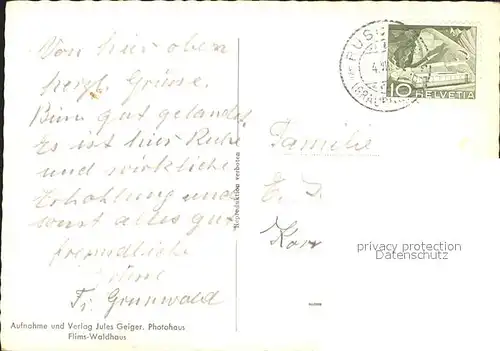 Von hier oben
herzl. Grüsse.
Bin gut gelandet.
Es ist hier Ruhe
und wirkliche
Erhohlung und
sonst alles gut
freundliche
Grüsse
Fr. Grunwald
Familie
E.
Reproduktion verboten
PUS
HELVETIA
10
privacy protection
DM-ARENA.COM
Aufnahme und Verlag Jules Geiger, Photohaus
Flims-Waldhaus